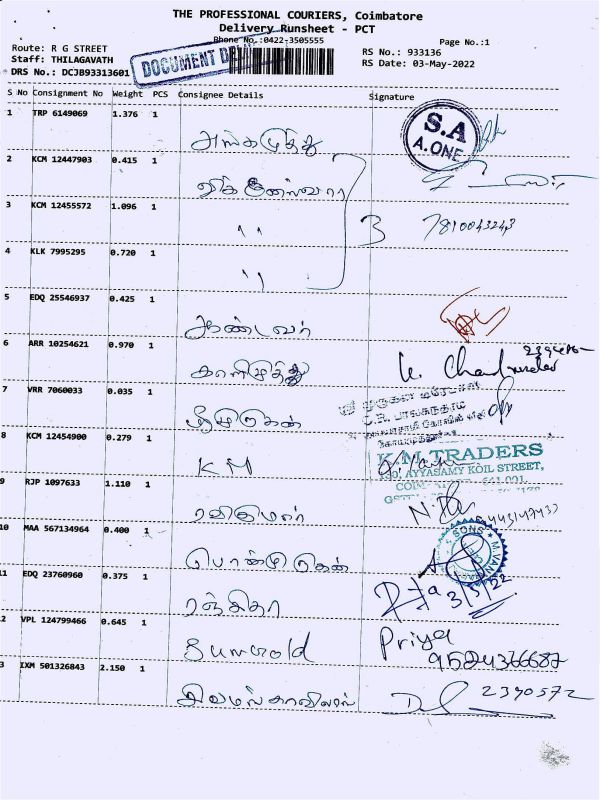 THE PROFESSIONAL COURIERS, Coimbatore
Delivery Runsheet - PCT
Phone No.:0422-3505555
Page No.:1
Route: R G STREET
RS No.: 933136
Staff: THILAGAVATH
RS Date: 03-May-2022
DRS No.: DCJB93313601
DOCUMENT DEL
S No Consignment No Weight PCS Consignee Details Signature
1 TRP 6149069 1.376 1
S.A
A.ONE
2 KCM 12447903 0.415 1
3 KCM 12455572 1.096 1
" 3 7810043243
4 KLK 7995295 0.720 1
"
5 EDQ 25546937 0.425 1
ஆண்டவர்
6 ARR 10254621 0.970 1
காளிமுத்து
7 VRR 7060033 0.035 1
ஸ்ரீமுருகன்
8 KCM 12454900 0.279 1
KM
K.M.TRADERS
AYYASAMY KOIL STREET,
9 RJP 1097633 1.110 1
ரவிகுமார்
10 MAA 567134964 0.400 1
SONS
பொன்முருகன்
11 EDQ 23760960 0.375 1
3/5/22
ரஞ்சிதா
2 VPL 124799466 0.645 1
Sungold Priya
9524366687
3 IXM 501326843 2.150 1
2390572